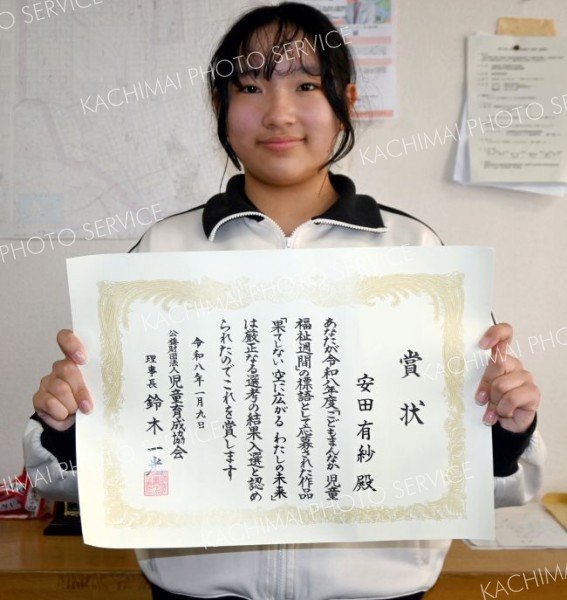 賞状
安田有紗殿
あなたが令和八年度「こどもまんなか 児童
福祉週間」の標語として応募された作品
「果てしない 空に広がる わたしの未来」
は厳正なる選考の結果入選と認め
られたのでこれを賞します
令和八年一月九日
公益財団法人児童育成協会
理事長 鈴木一光
KACHIMAI PHOTO SERVICE
KACHIMAI PHOTO SERVICE
KACHIMAI PHOTO SERVICE
PHOTO SERVICE
KACHIMAI PHOTO SERVICE
KACHIMAI PHOTO
KACHIMAI PHOTO SERVICE
KACHIMAI PHOTO SERVICE
KACHIMAI